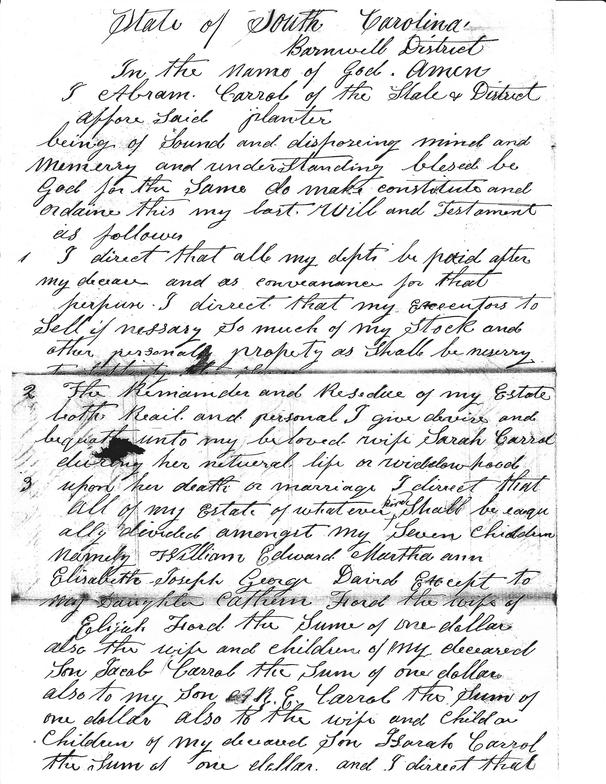 State of South Carolina
Barnwell District
In the Name of God. Amen
I Abram. Carrol of the State & District
affore Said planter
being of Sound and disposeing mind and
Memerry and understanding blesed be
God for the Same do make constitute and
ordaine this my last. Will and Testament
as follows
1 I direct that all my depts be paid after
my decease and as conveanance for that
perpus. I dirrect that my Executors to
Sell if nessary So much of my Stock and
other personal propety as Shall be neserry
2 The Remainder and Resedue of my Estate
both Reail and personal I give devise and
bequath unto my beloved wife Sarah Carrol
during her netueral life or widdow hood
3 upon her death or marriage I direct that
all of my Estate of whatever kind Shall be eaqu
ally divided amongst my Seven Children
Namely William Edward Martha ann
Elisabeth Joseph George David Except to
my Daughter Cathern Ford the wife of
Elijah Ford the Sume of one dollar
also the wife and children of my deceared
Son Jacob Carrol the Sum of one dollar
also to my Son R. E. Carrol the Sum of
one dollar also to the wife and Child or
Children of my deceared Son Carrol
the Sum of one dollar. and I direct that